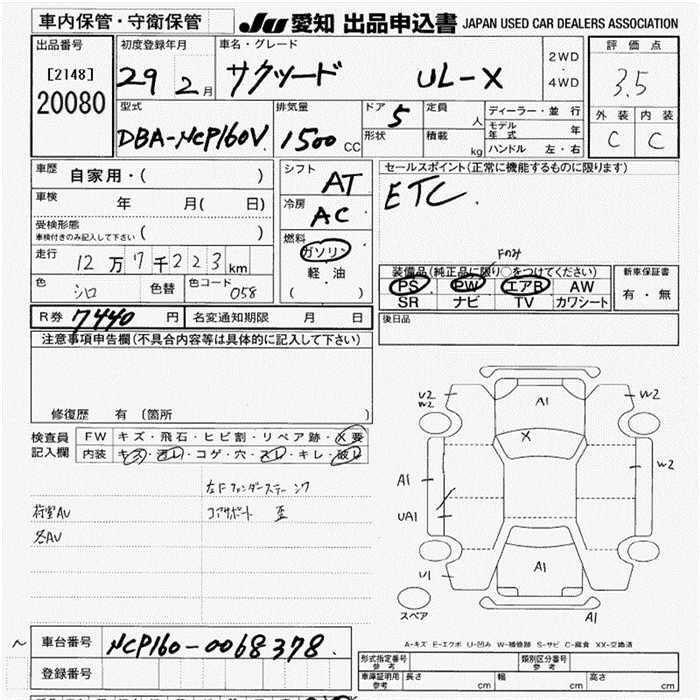 車内保管・守衛保管 JU 愛知 出品申込書 JAPAN USED CAR DEALERS ASSOCIATION
出品番号 初度登録年月 車名・グレード 2WD・4WD 評価点
[2148] 29 2月 サクシード UL-X 3.5
20080
型式 排気量 ドア 5 定員 人 ディーラー・並行 外装 内装
DBA-NCP160V 1500 CC 形状 積載 kg モデル年式 年 C C
ハンドル 左・右
車歴 自家用・( ) シフト AT セールスポイント(正常に機能するものに限ります)
車検 年 月( 日) 冷房 AC ETC
受検形態 車検付きのみ記入して下さい ( ) 燃料 ガソリン Fのみ
走行 12万7千223km 軽油 装備品(純正品に限り○をつけてください) 新車保証書
色 シロ 色替 色コード 058 ( ) PS PW エアB AW 有・無
SR ナビ TV カワシート
R券 7440 円 名変通知期限 月 日 後日品
注意事項申告欄(不具合内容等は具体的に記入して下さい)
修復歴 有 〔箇所 〕
検査員記入欄 FW キズ・飛石・ヒビ割・リペア跡・X要
内装 キズ・汚レ・コゲ・穴・スレ・キレ・破レ
左Fフェンダーステー ング
荷室AV コアサポート 歪
各AV
U2
W2
A1
W2
X
A1
W2
UA1
A1
U1
スペア
A1
A-キズ E-エクボ U-凹み W-補修跡 S-サビ C-腐食 XX-交換済
~ 車台番号 NCP160-0068378 形式指定番号 参考 類別区分番号 参考
登録番号 車庫証明用 参考 長さ cm 幅 cm 高さ cm